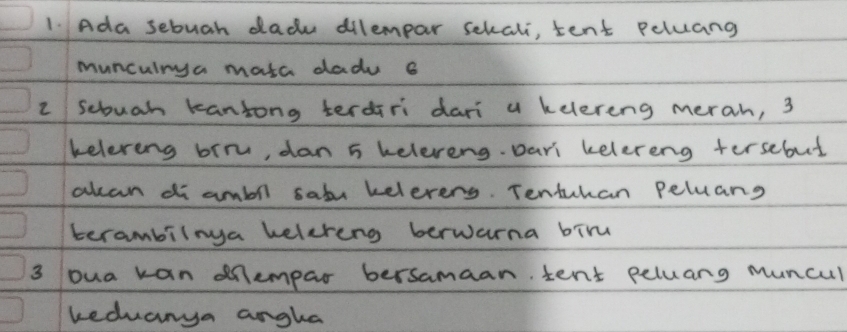 1. Ada sebuah dadu dilempar sekali, tent peluang
munculnya mata dadu 6
2 sebuah kantong terdiri dari 4 kelereng merah, 3
kelereng biru, dan 5 kelereng. Dari kelereng tersebut
akan di ambil satu kelereng. Tentukan Peluang
terambilnya kelereng berwarna biru
3 Dua kan dilempar bersamaan. tent peluang muncul
keduanya angka